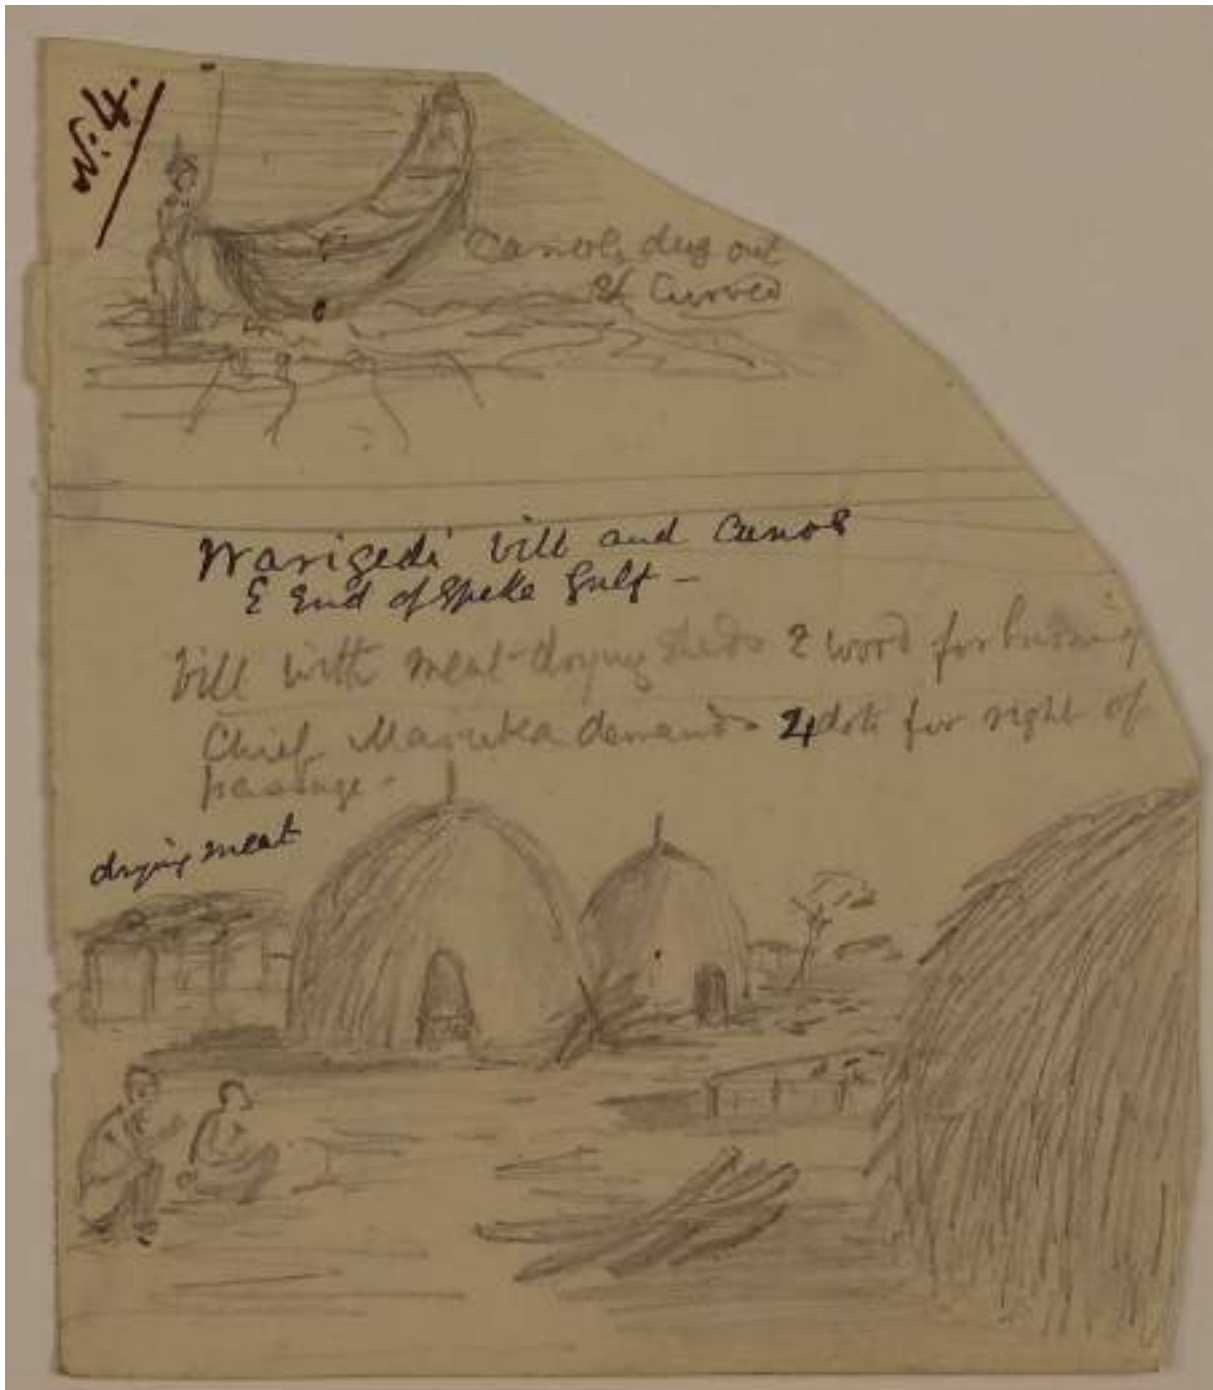 N: 4.
Canoe, dug out
& Curved
Warigedi Vill and Canoe
E End of Speke Gulf –
Vill with meat-drying sheds & wood for burning
Chief demands 4 doti for right of
passage –
drying meat